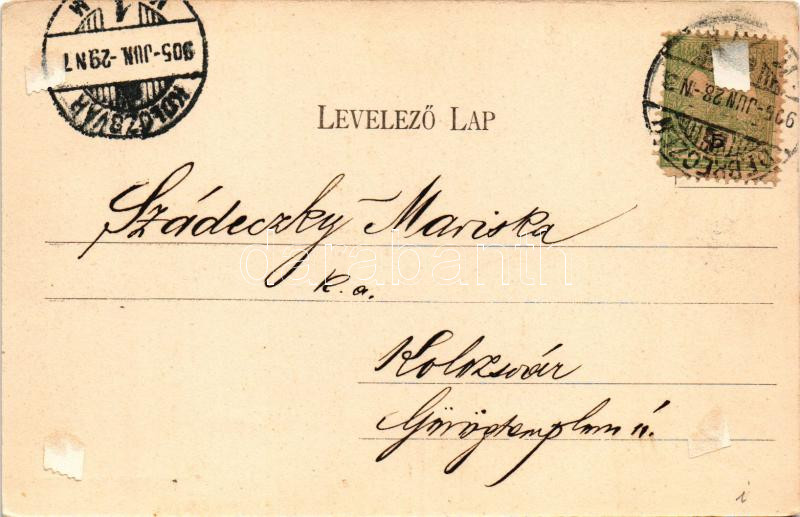 KOLOZSVÁR
905-JUN.-29 N 7
1
M
DEBRECZEN
905-JUN 28-N
5
LEVELEZŐ LAP
Szádeczky Mariska
k. a.
Kolozsvár
Görögtemplom ú.
darabanth
i